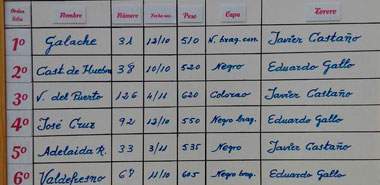 Orden Lidia Nombre Número Fecha nac. Peso Capa Torero
1º Galache 31 12/10 510 N. brag. corr. Javier Castaño
2º Cast. de Huebra 38 10/10 520 Negro Eduardo Gallo
3º V. del Puerto 126 4/11 620 Colorao Javier Castaño
4º José Cruz 92 12/10 550 Negro brag. Eduardo Gallo
5º Adelaida R. 33 3/11 535 Negro Javier Castaño
6º Valdefresno 67 11/10 605 Negro brag. Eduardo Gallo